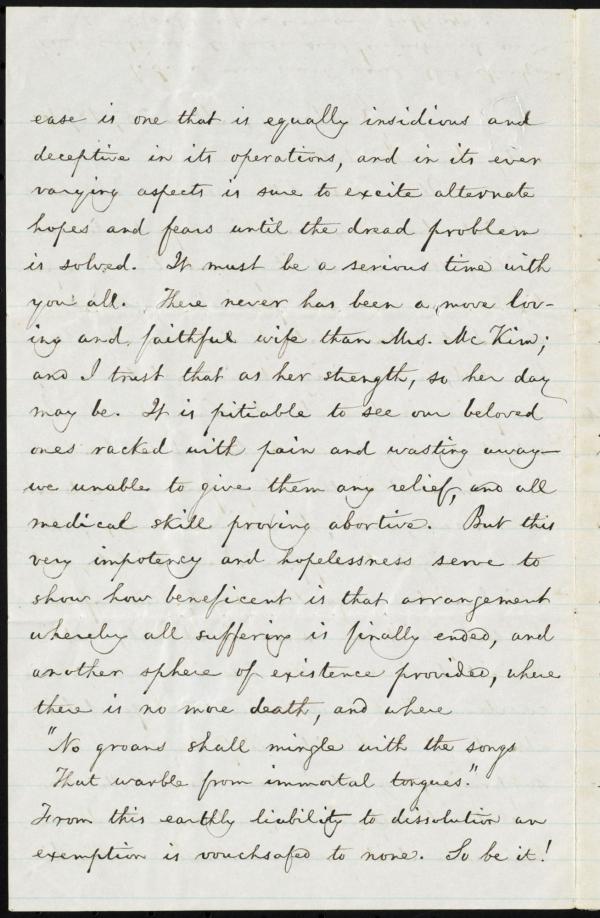 ease is one that is equally insidious and
deceptive in its operations, and in its ever
varying aspects is sure to excite alternate
hopes and fears until the dread problem
is solved. It must be a serious time with
you all. There never has been a more lov-
ing and faithful wife than Mrs. McKim;
and I trust that as her strength, so her day
may be. It is pitiable to see our beloved
ones racked with pain and wasting away—
we unable to give them any relief, and all
medical skill proving abortive. But this
very impotency and hopelessness serve to
show how beneficent is that arrangement
whereby all suffering is finally ended, and
another sphere of existence provided, where
there is no more death, and where
"No groans shall mingle with the songs
That warble from immortal tongues."
From this earthly liability to dissolution an
exemption is vouchsafed to none. So be it!